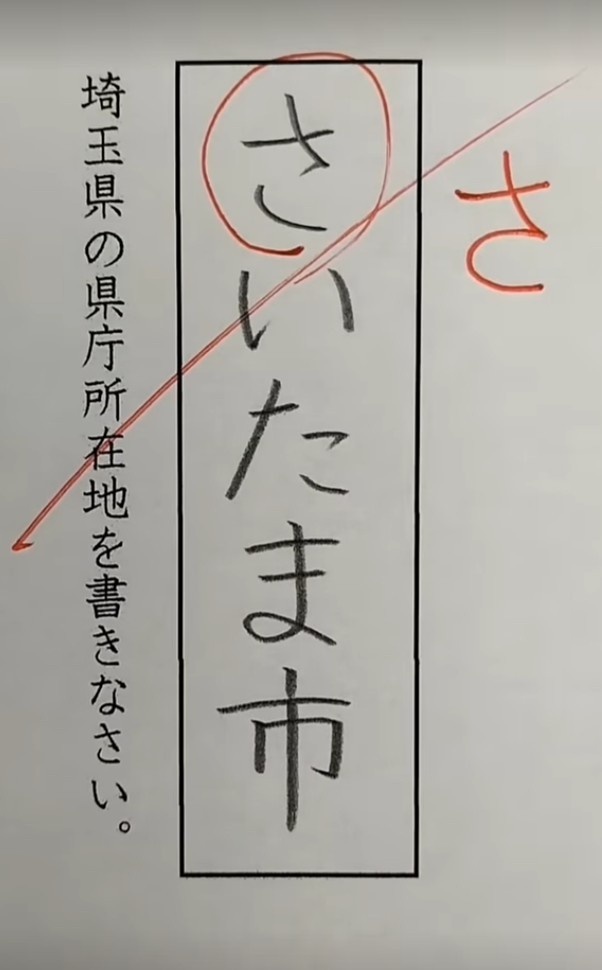 さ
さいたま市
埼玉県の県庁所在地を書きなさい。